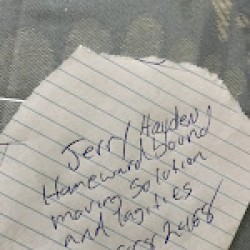 Jerry Hayden
Homeward bound
moving solution
and logities